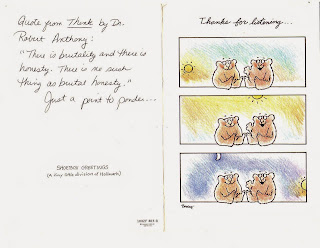 Quote from Think by Dr.
Robert Anthony:
"There is brutality and there is
honesty. There is no such
thing as brutal honesty."
Just a point to ponder...
SHOEBOX GREETINGS
(A tiny little division of Hallmark)
Thanks for listening...